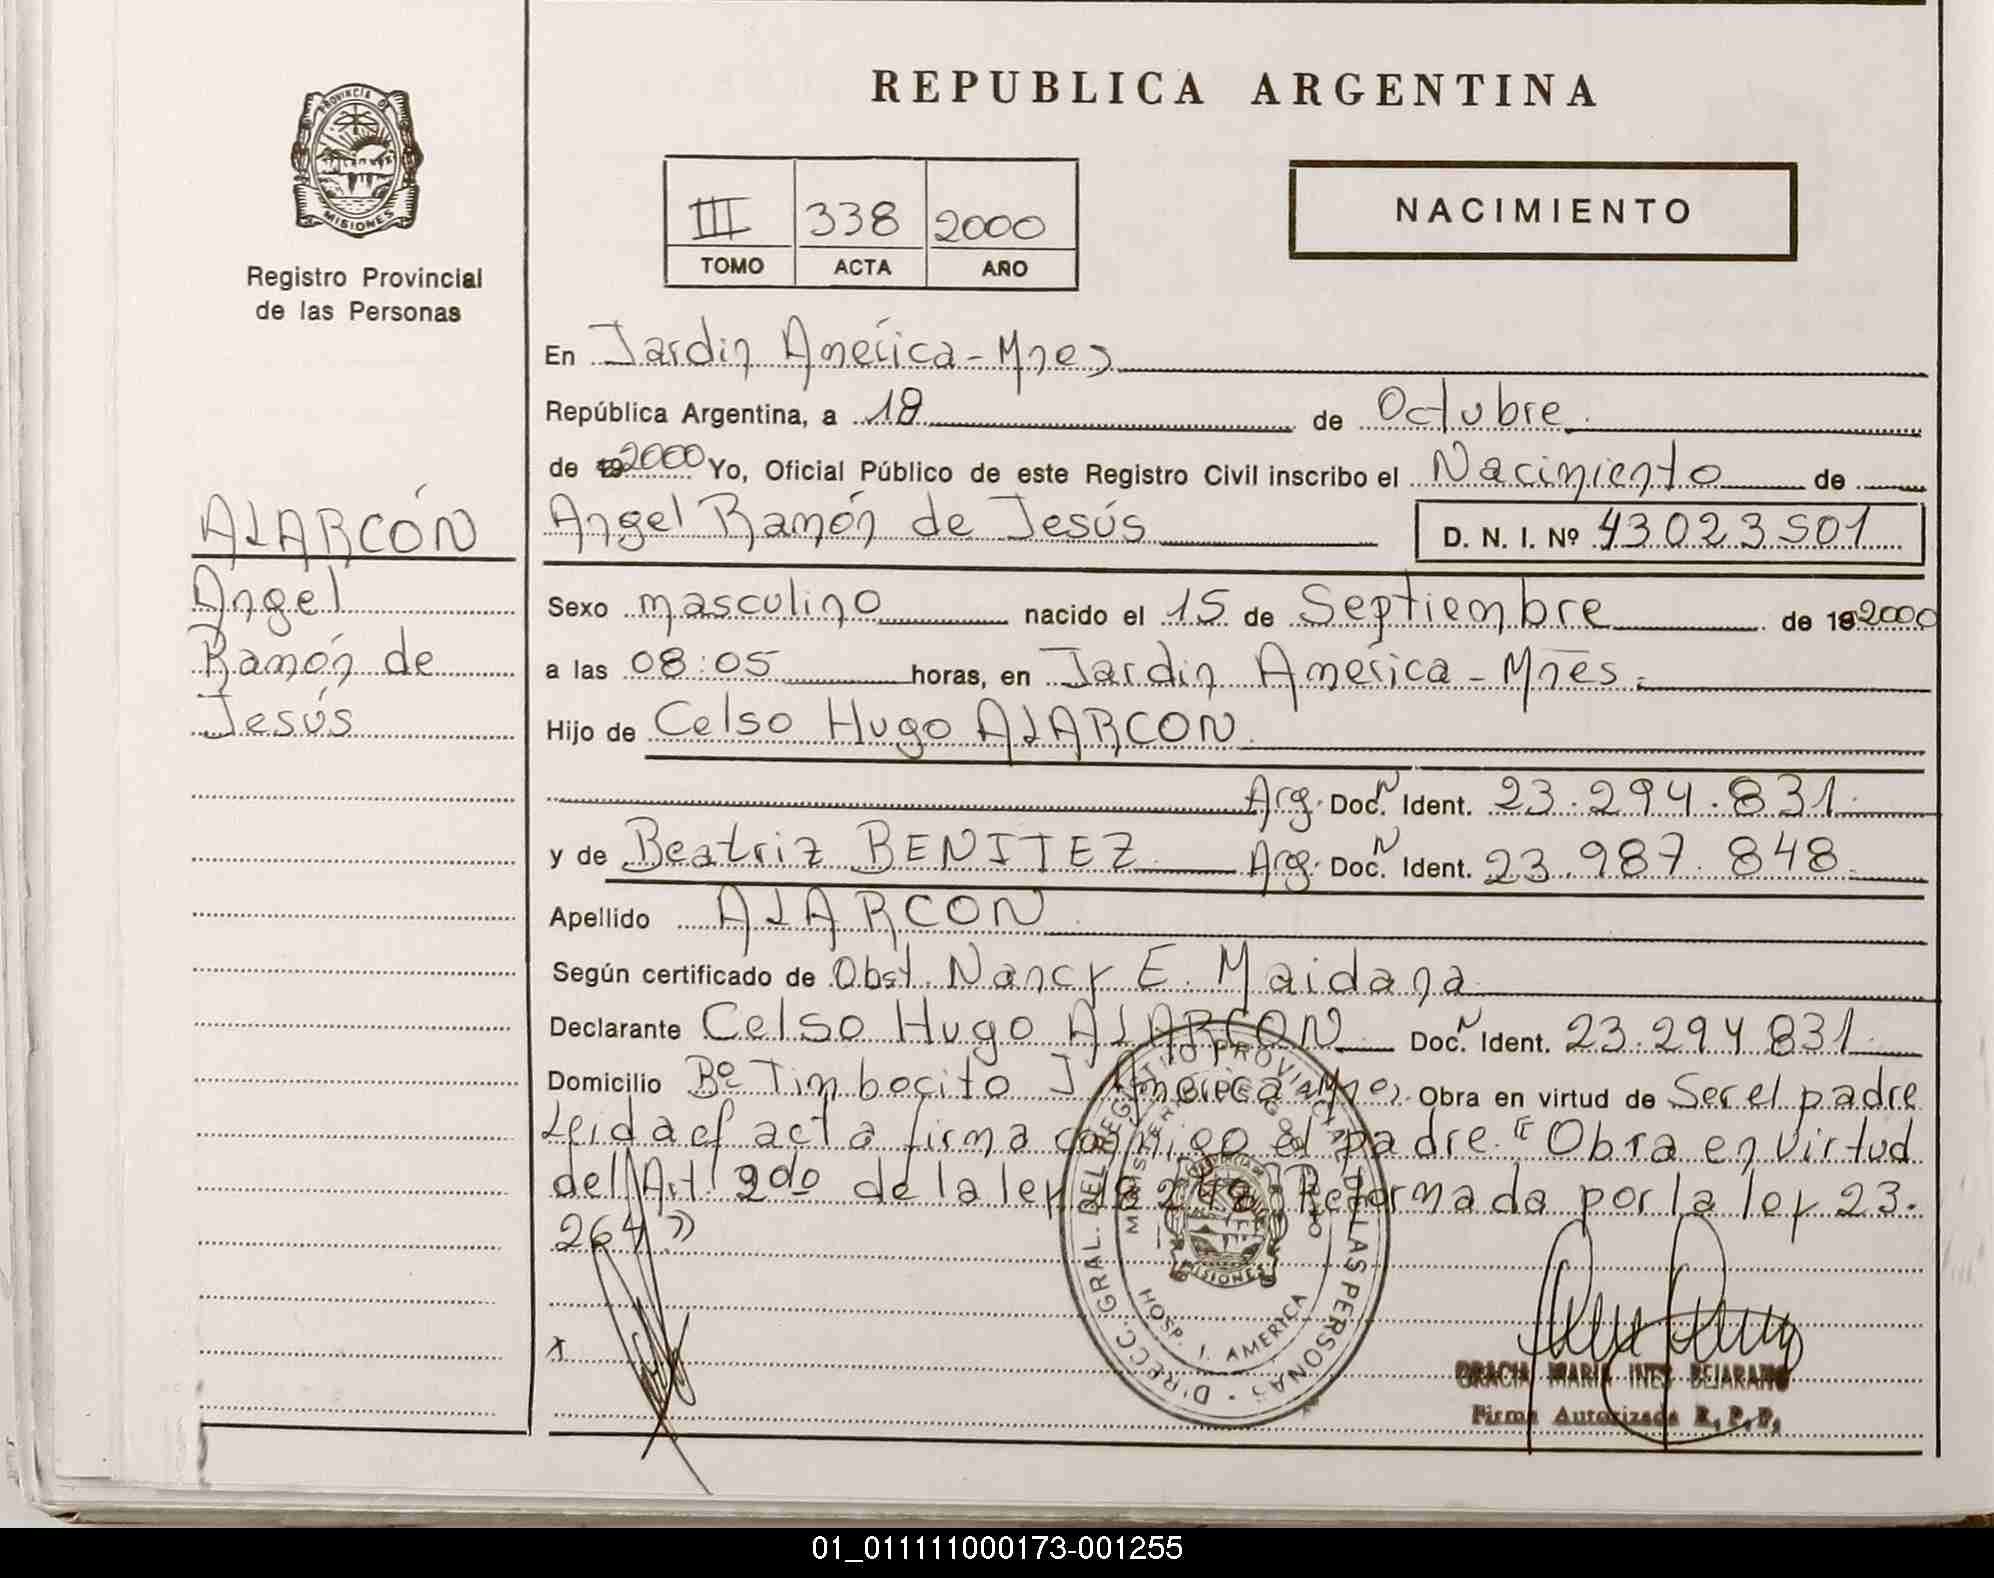 REPUBLICA ARGENTINA
PROVINCIA DE
MISIONES
Registro Provincial
de las Personas
III 338 2000
TOMO ACTA AÑO
NACIMIENTO
En Jardin América - Mnes
República Argentina, a 18 de Octubre
de 2000 Yo, Oficial Público de este Registro Civil inscribo el Nacimiento de
ALARCÓN
Angel
Ramón de
Jesús
Angel Ramón de Jesús D. N. I. Nº 43023501
Sexo masculino nacido el 15 de Septiembre de 192000
a las 08:05 horas, en Jardin América - Mnes.
Hijo de Celso Hugo ALARCON
Arg. Doc. N Ident. 23.294.831
y de Beatriz BENITEZ Arg. Doc. N Ident. 23.987.848
Apellido ALARCON
Según certificado de Obst. Nancy E. Maidana
Declarante Celso Hugo ALARCON Doc. N Ident. 23.294 831
Domicilio Bº Timbocito J América Mnes Obra en virtud de Ser el padre
Leida el acta firma conmigo el padre. "Obra en virtud
del Art 2do de la ley 18 248 Reformada por la ley 23.
264"
x
DIRECC. GRAL. DEL REGISTRO PROVINCIAL DE LAS PERSONAS
MINISTERIO DE GOBIERNO
MISIONES
HOSP. J. AMERICA
GRACIA MARIA INES BEJARANO
Firma Autorizada R. P. P.
01_011111000173-001255